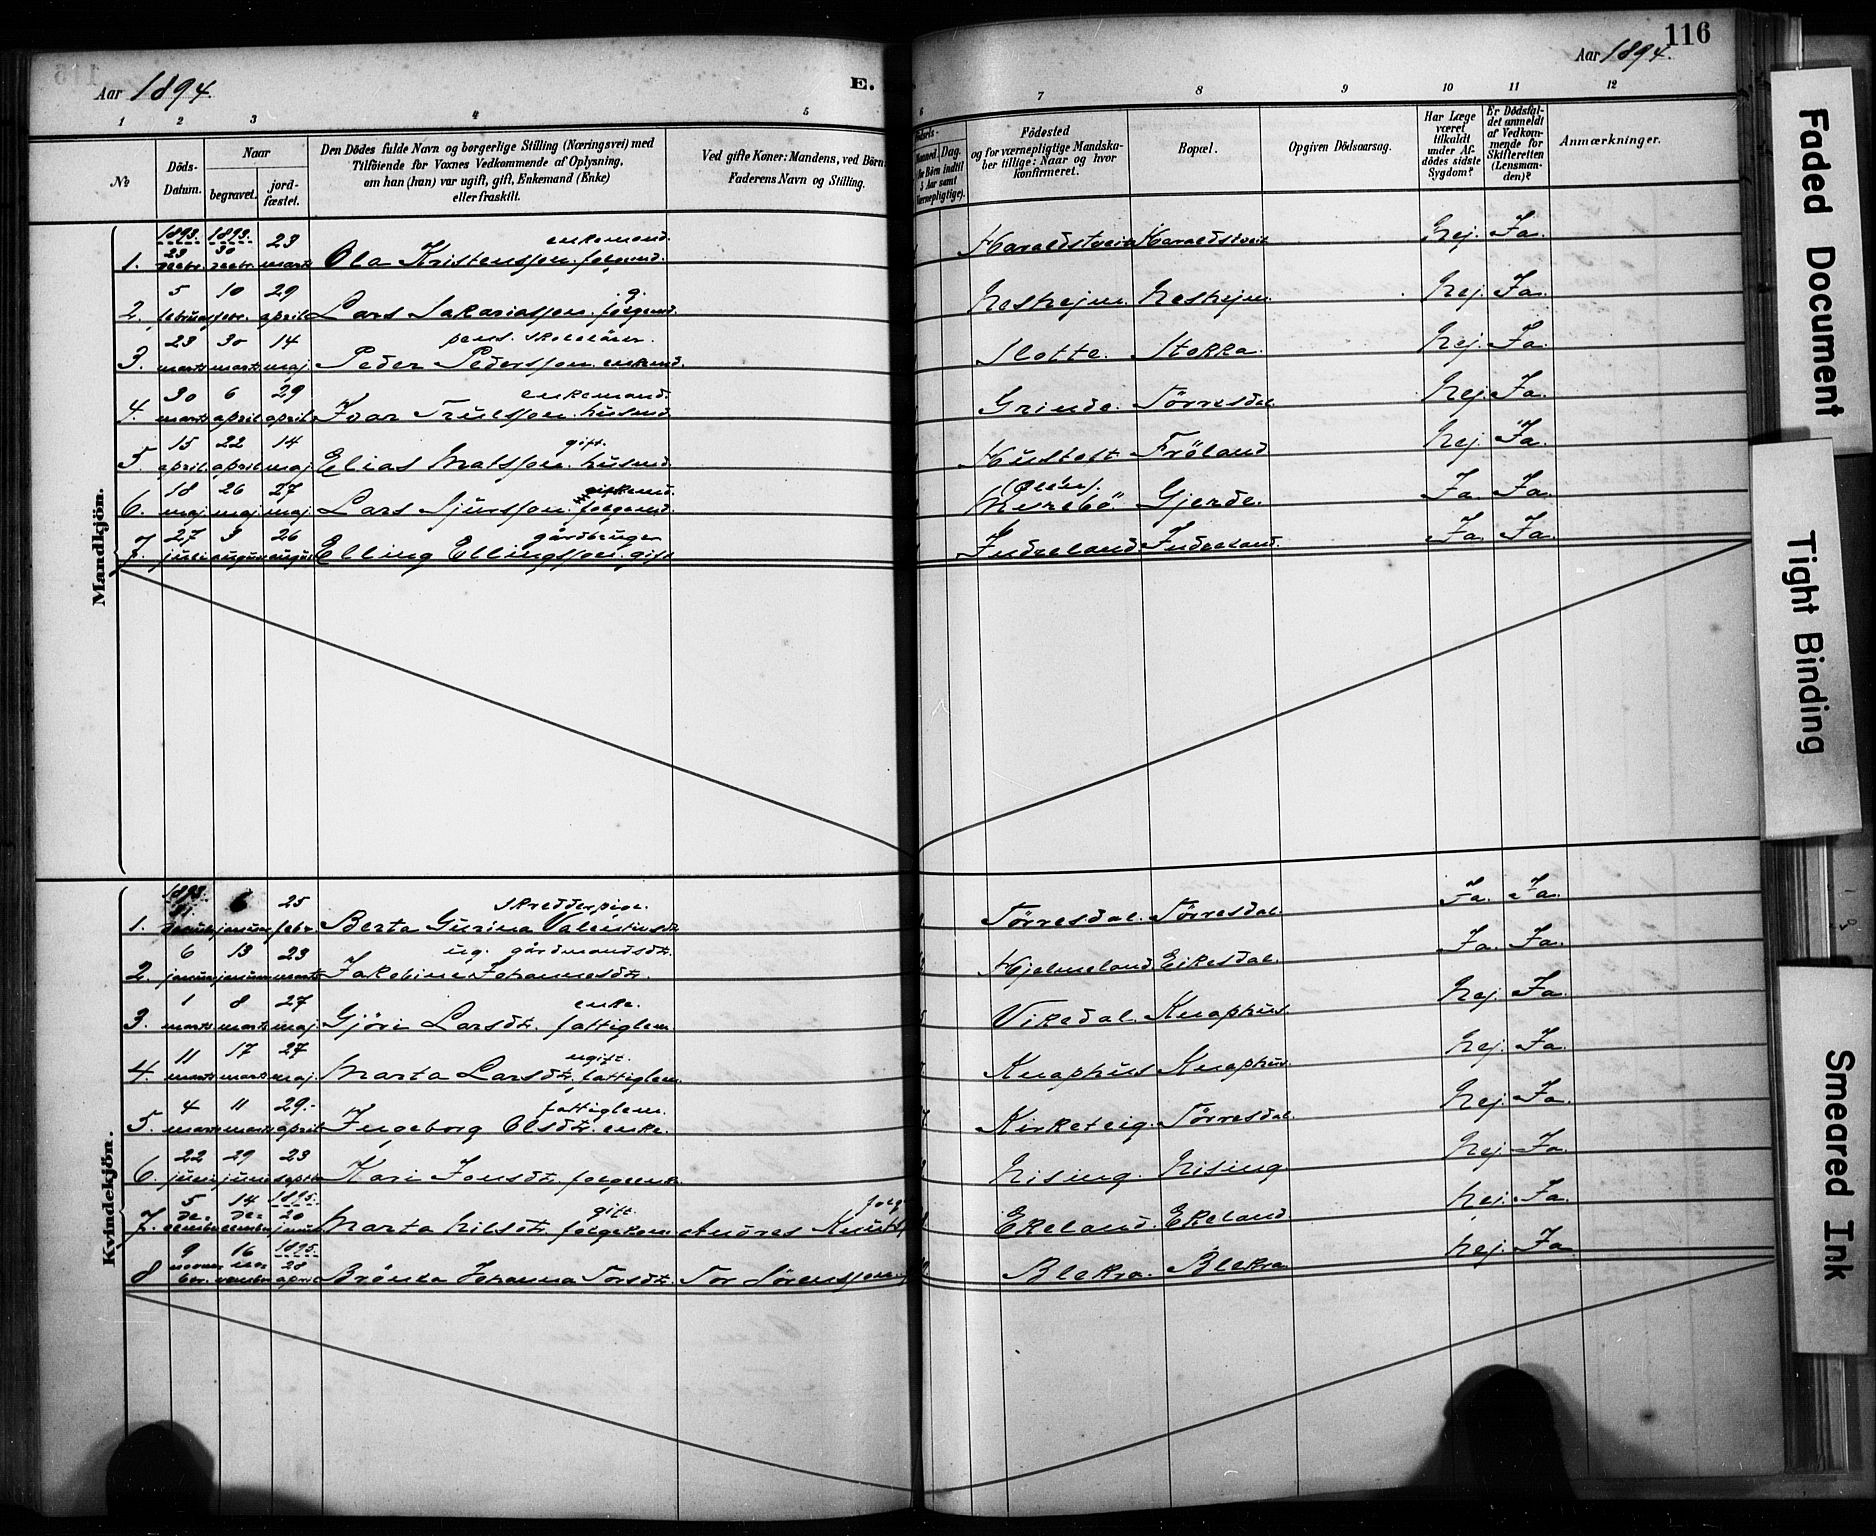 116
Aar 1894.
E.
Aar 1894.
1 2 3 4 5 6 7 8 9 10 11 12
№
Döds-Datum.
Naar
begravet.
jord-fæstet.
Den Dödes fulde Navn og borgerlige Stilling (Næringsvei) med
Tilföiende for Voxnes Vedkommende af Oplysning,
om han (han) var ugift, gift, Enkemand (Enke)
eller fraskilt.
Ved gifte Koner: Mandens, ved Börn:
Faderens Navn og Stilling.
Maaned. Dag.
Födested
og for værnepligtige Mandska-
ber tillige: Naar og hvor
konfirmeret.
Bopæl.
Opgiven Dödsaarsag.
Har Læge
været
tilkaldt
under Af-
dödes sidste
Sygdom?
Er Dödsfal-
det anmeldt
af Vedkom-
mende for
Skifteretten
(Lensman-
den)?
Anmærkninger.
Mandkjön.
1. 1893. 23 decbr. 1893. 30 decbr. 23 marts Ola Kristenssøn. enkemand. følgemd. Haraldstveit Haraldstveit Nej. Ja.
2. 5 februar 10 febr. 29 april Lars Sakariassøn. g. følgemd. Neshejm. Neshejm. Nej. Ja.
3. 23 marts 30 marts 14 maj. Peder Pederssøn. pens. skolelärer. enkemd. Slotte. Stokka. Nej. Ja.
4. 30 marts 6 april 29 april Ivar Trulssøn. enkemand. husmd. Grinde. Törresdal Nej. Ja.
5. 15 april 22 april 14 maj. Elias Matssøn. gift. husmd. Hustoft Fröland Nej. Ja.
6. 18 maj. 26 maj. 27 maj. Lars Sjurssøn. følgemd. (Ølen). Murebö Gjerde. Ja. Ja.
7. 27 juli 3 august 26 august Elling Ellingssøn. gårdbruger gift Indreland Indreland. Ja. Ja.
Kvindekjön.
1. 1893. 6 januar 25 febr. Berta Gurina Valentinsdtr. skredderpige. Törresdal. Törresdal. Ja. Ja.
2. 6 januar 13 januar 23 marts Jakobine Johannesdtr. ug. gårdmandsdtr. Hjelmeland Eikesdal. Ja. Ja.
3. 1 marts 8 marts 27 maj. Gjöri Larsdtr. enke. fattiglem Vikedal. Knaphus. Nej. Ja.
4. 11 marts 17 marts 27 maj. Marta Larsdtr. ugift. fattiglem. Knaphus Knaphus. Nej. Ja.
5. 4 marts 11 marts 29. april Ingeborg Olsdtr. fattiglem. enke. Kirketeig. Törresdal Nej. Ja.
6. 22 juni 29 juni 23 septbr Kari Jonsdtr. Nising. Nising Nej. Ja.
7. 5 december 14 december 1895. 20 januar Marta Nilsdtr. gift. følgekone Andres Knuts Ekeland. Ekeland Nej. Ja.
8. 9 novem-ber. 16 november 1895. 28 april Brönla Johanna Torsdtr. Tor Sörenssøn. Blekra. Blekra Nej. Ja
Faded Document
Tight Binding
Smeared Ink